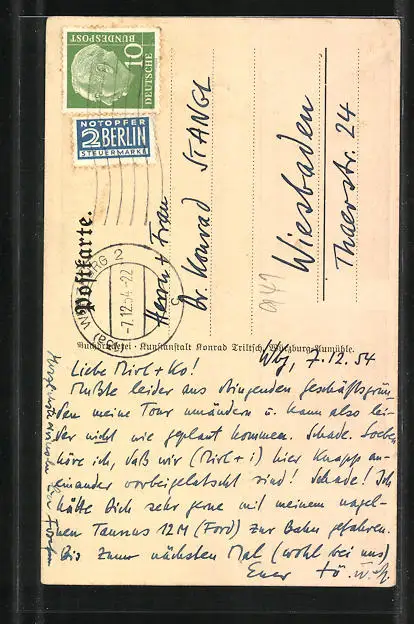 DEUTSCHE
BUNDESPOST
10
NOTOPFER
2 BERLIN
STEUERMARKE
Postkarte.
WÜRZBURG 2
-7.12.54-22
Herrn + Frau
Dr. Konrad STANGL
Wiesbaden
Thaerstr. 24
Buchdruckerei · Kunstanstalt Konrad Triltsch, Würzburg-Aumühle.
Wbg, 7.12.54
Liebe Mirl + Ko!
Mußte leider aus dringenden Geschäftsgrün-
den meine Tour umändern u. kann also lei-
der nicht wie geplant kommen. Schade. Soeben
höre ich, daß wir (Mirl + i) hier knapp an-
einander vorbeigelatscht sind! Schade! Ich
hätte Dich sehr gerne mit meinem nagel-
neuen Taunus 12M (Ford) zur Bahn gefahren.
Bis zum nächsten Mal (wohl bei uns)
Euer